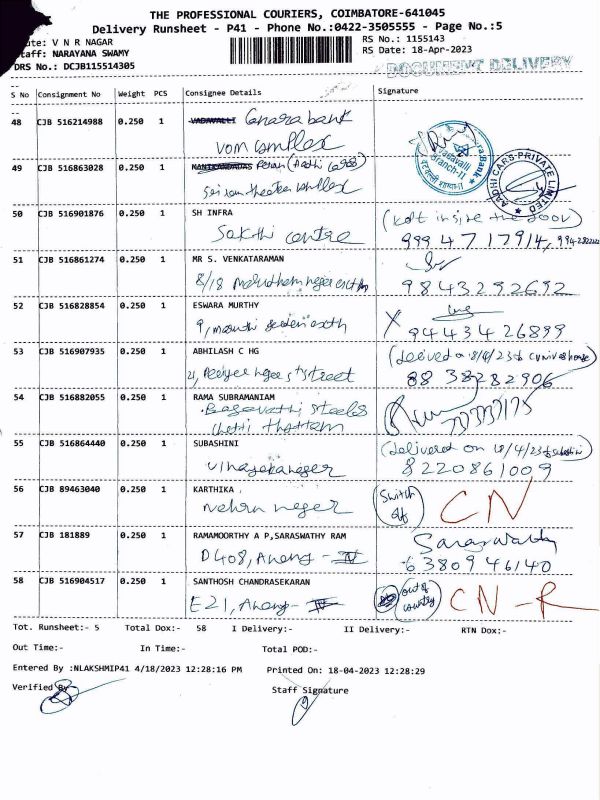 THE PROFESSIONAL COURIERS, COIMBATORE-641045
Delivery Runsheet - P41 - Phone No.:0422-3505555 - Page No.:5
ute: V N R NAGAR
RS No.: 1155143
taff: NARAYANA SWAMY
RS Date: 18-Apr-2023
DRS No.: DCJB115514305
DOCUMENT DELIVERY
S No Consignment No Weight PCS Consignee Details Signature
48 CJB 516214988 0.250 1 VADAVALLI Canara bank
vom complex
49 CJB 516863028 0.250 1
AADHI CARS PRIVATE LIMITED
50 CJB 516901876 0.250 1 SH INFRA (kept inside the door)
Sakthi centre 99947 17914,
51 CJB 516861274 0.250 1 MR S. VENKATARAMAN
8/18 98432 92692
52 CJB 516828854 0.250 1 ESWARA MURTHY
9, X 94434 26899
53 CJB 516907935 0.250 1 ABHILASH C HG
street 88 38282906
54 CJB 516882055 1 0.250 RAMA SUBRAMANIAM
Bagavathi steels
Chetti thottam
55 CJB 516864440 0.250 1 SUBASHINI (delivered on 18/4/23
vinayaka neger 8220861009
56 CJB 89463040 0.250 1 KARTHIKA . Switch off CN
Nehru neger
57 CJB 181889 0.250 1 RAMAMOORTHY A P,SARASWATHY RAM Saraswathy
D408, - IV 63809 46140
58 CJB 516904517 0.250 1 SANTHOSH CHANDRASEKARAN out of country CN-R
E21, - IV
Tot. Runsheet:- 5 Total Dox:- 58 I Delivery:- II Delivery:- RTN Dox:-
Out Time:- In Time:- Total POD:-
Entered By :NLAKSHMIP41 4/18/2023 12:28:16 PM Printed On: 18-04-2023 12:28:29
Verified By Staff Signature